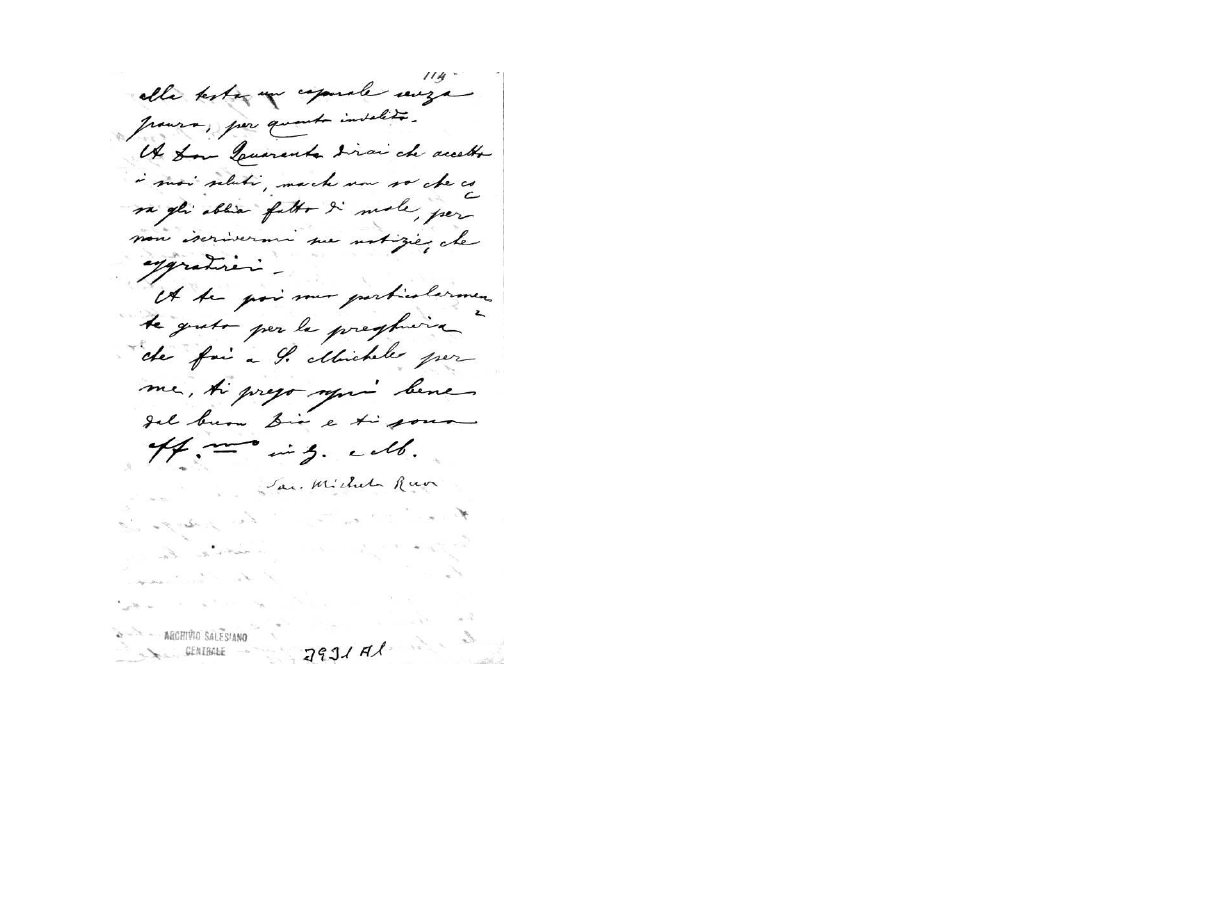 114
alla testa un caporale senza
paura, per quanto invalido.
A Don Quaranta dirai che accetto
i miei saluti, ma che non so che co
sa gli abbia fatto di male, per
non iscrivermi sue notizie, che
aggradirei.
A te poi particolarmen
te grato per la preghiera
che fai a S. Michele per
me, ti prego ogni bene
dal buon Dio e ti sono
aff.mo in G. e M.
Sac. Michele Rua
ARCHIVIO SALESIANO
CENTRALE
3931 A1